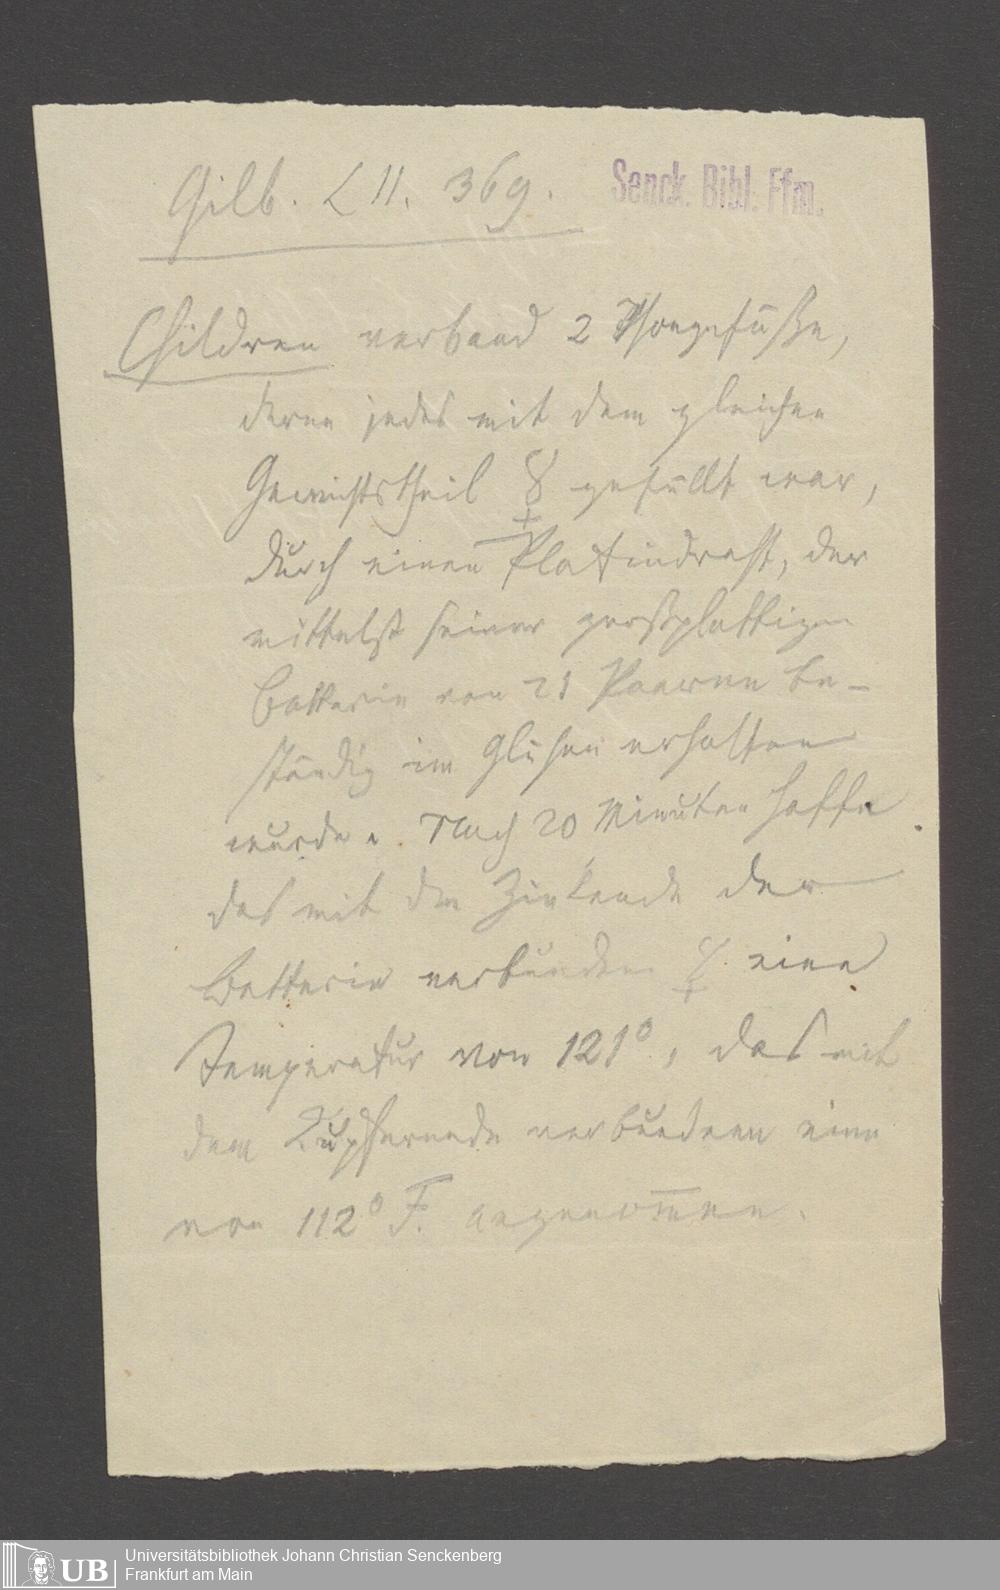 Gilb. LII. 369.
Senck. Bibl. Ffm.
Children verband 2 Thongefäße,
deren jedes mit dem gleichen
Gewichtstheil ☿ gefüllt war,
durch einen Platindraht, der
mittelst seiner großplattigen
Batterie von 21 Paaren be-
ständig im Glühen erhalten
wurde. Nach 20 Minuten hatte
das mit dem Zinkende der
Batterie verbunden ☿ eine
Temperatur von 121°, das mit
dem Kupferende verbundene eine
von 112° F. angenom̅en.
UB
Universitätsbibliothek Johann Christian Senckenberg
Frankfurt am Main